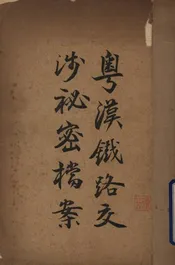 粵漢鐵路交
涉祕密檔案